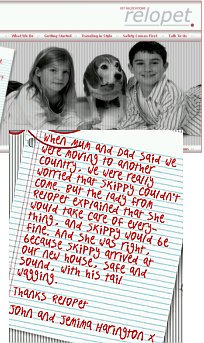 PET RELOCATIONS
relopet.
What We Do
Getting Started
Travelling in Style
Safety Comes First
Talk To Us
When Mum and Dad said we
were moving to another
country, we were really
worried that Skippy couldn't
come. But the lady from
Relopet explained that she
would take care of every-
thing, and Skippy would be
fine. And she was right -
because Skippy arrived at
our new house, safe and
sound, with his tail
wagging.
Thanks Relopet
John and Jemima Harington x